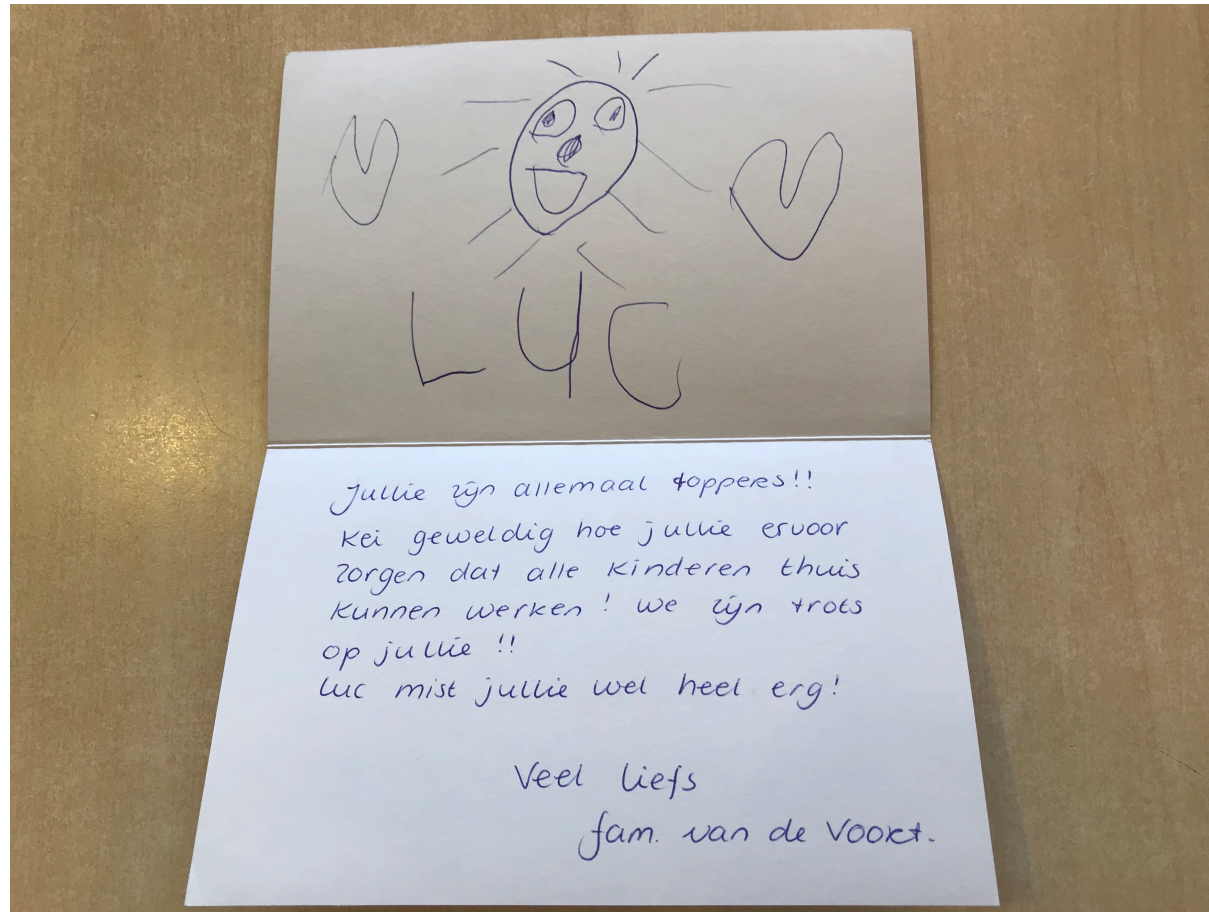 LUC
Jullie zijn allemaal toppers!!
Kei geweldig hoe jullie ervoor
zorgen dat alle kinderen thuis
kunnen werken! We zijn trots
op jullie!!
Luc mist jullie wel heel erg!
Veel liefs
fam. van de Voort.